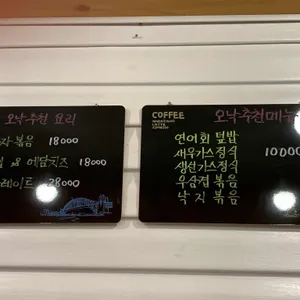 오늘추천 요리
자볶음 18000
& 에담치즈 18000
레이트 28000
COFFEE
AMERICANO
LATTE
ESPRESSO
오늘추천메뉴
연어회 덮밥
새우가스정식 10000
생선가스정식
우삼겹볶음
낙지볶음